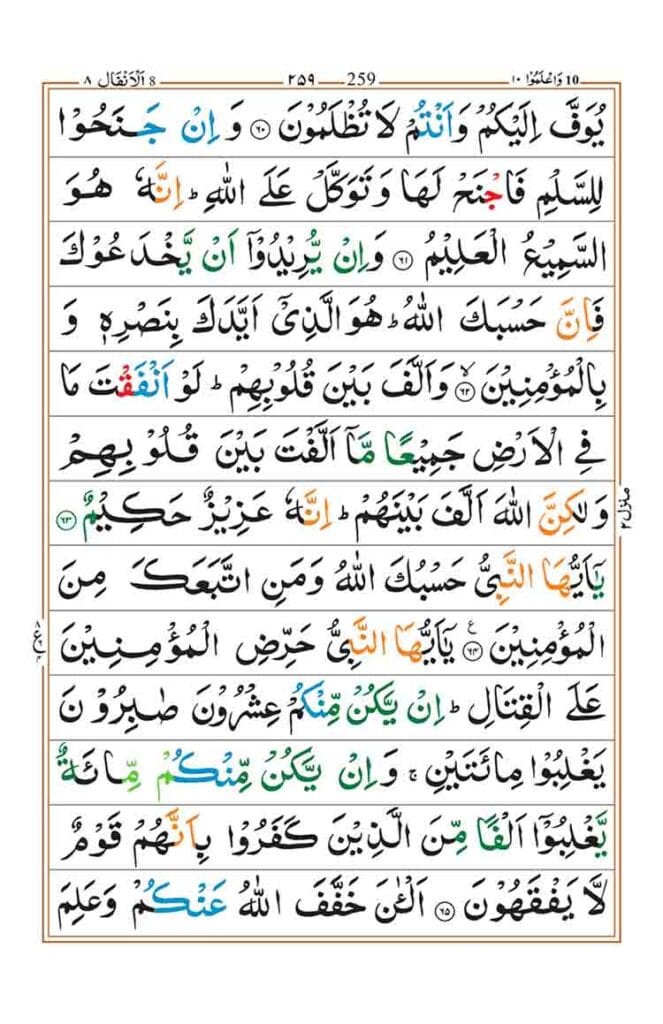 10 وَاعْلَمُوْا ١٠ 259 ٢٥٩ 8 اَلْاَنْفَال ٨
يُوَفَّ اِلَيْكُمْ وَاَنْتُمْ لَا تُظْلَمُوْنَ ۝٦٠ وَ اِنْ جَنَحُوْا
لِلسَّلْمِ فَاجْنَحْ لَهَا وَ تَوَكَّلْ عَلَى اللّٰهِ ؕ اِنَّهٗ هُوَ
السَّمِيْعُ الْعَلِيْمُ ۝٦١ وَاِنْ يُّرِيْدُوْۤا اَنْ يَّخْدَعُوْكَ
فَاِنَّ حَسْبَكَ اللّٰهُ ؕ هُوَ الَّذِيْۤ اَيَّدَكَ بِنَصْرِهٖ وَ
بِالْمُؤْمِنِيْنَ ۝٦٢ۙ وَاَلَّفَ بَيْنَ قُلُوْبِهِمْ ؕ لَوْ اَنْفَقْتَ مَا
فِي الْاَرْضِ جَمِيْعًا مَّاۤ اَلَّفْتَ بَيْنَ قُلُوْبِهِمْ
وَلٰكِنَّ اللّٰهَ اَلَّفَ بَيْنَهُمْ ؕ اِنَّهٗ عَزِيْزٌ حَكِيْمٌ ۝٦٣
يٰۤاَيُّهَا النَّبِيُّ حَسْبُكَ اللّٰهُ وَمَنِ اتَّبَعَكَ مِنَ
الْمُؤْمِنِيْنَ ۝٦٤ۧ يٰۤاَيُّهَا النَّبِيُّ حَرِّضِ الْمُؤْمِنِيْنَ
عَلَى الْقِتَالِ ؕ اِنْ يَّكُنْ مِّنْكُمْ عِشْرُوْنَ صٰبِرُوْنَ
يَغْلِبُوْا مِائَتَيْنِ ۚ وَاِنْ يَّكُنْ مِّنْكُمْ مِّائَةٌ
يَّغْلِبُوْۤا اَلْفًا مِّنَ الَّذِيْنَ كَفَرُوْا بِاَنَّهُمْ قَوْمٌ
لَّا يَفْقَهُوْنَ ۝٦٥ اَلْـٰٔنَ خَفَّفَ اللّٰهُ عَنْكُمْ وَعَلِمَ
منزل ٢